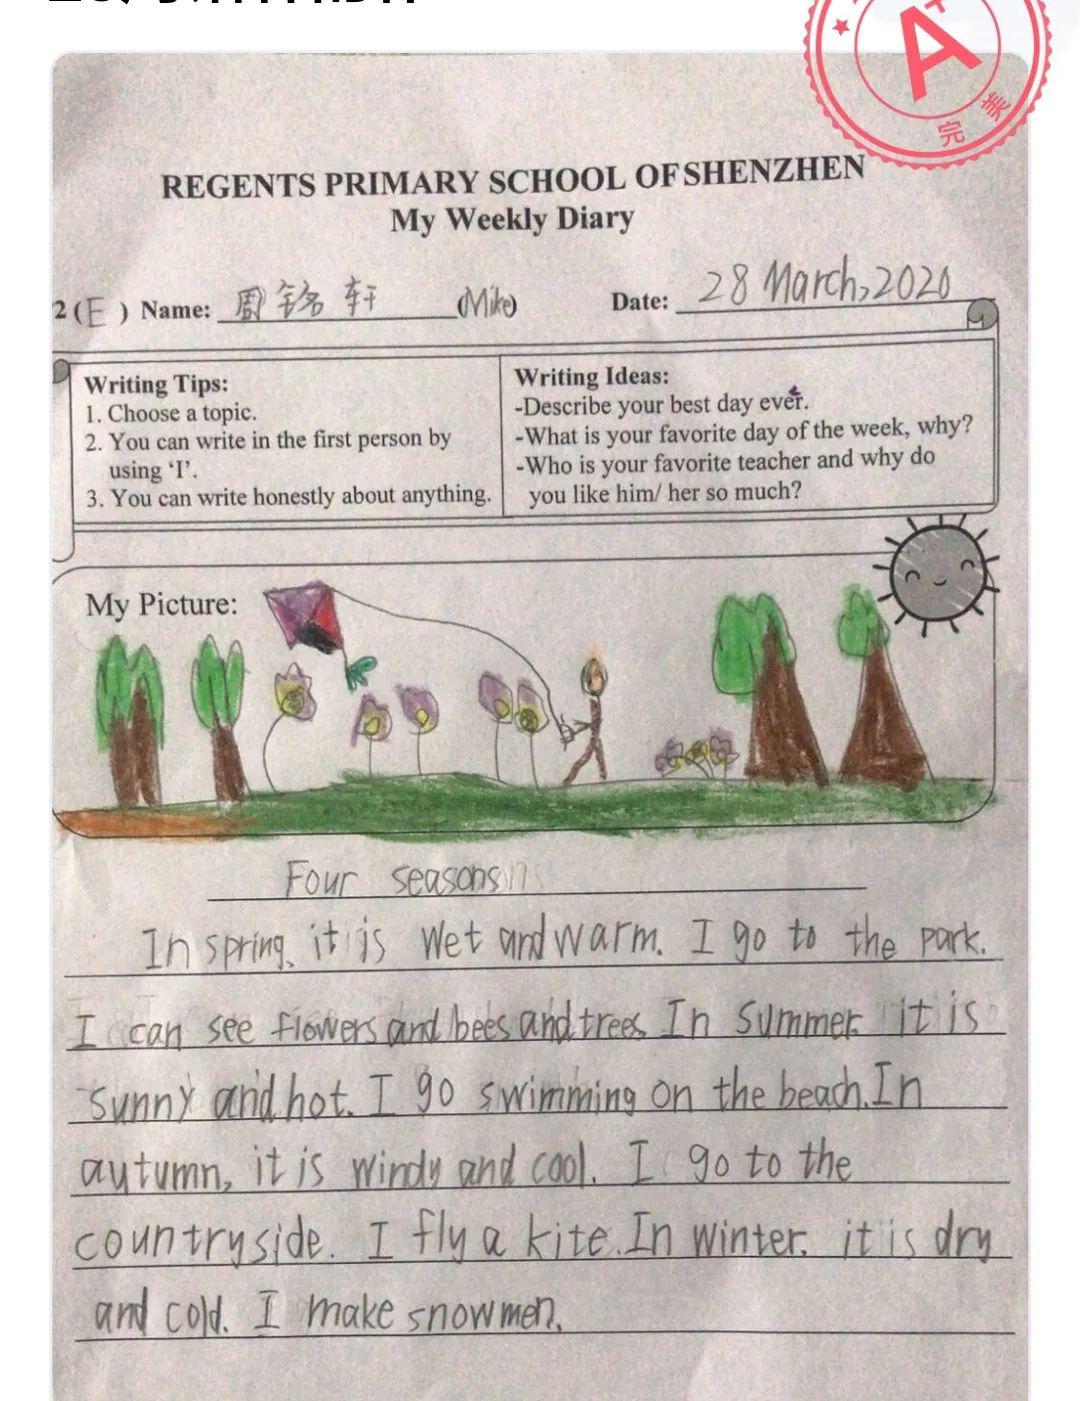 A+
完美
REGENTS PRIMARY SCHOOL OF SHENZHEN
My Weekly Diary
2 (E) Name: 周铭轩 (Mike) Date: 28 March, 2020
Writing Tips:
1. Choose a topic.
2. You can write in the first person by
using ‘I’.
3. You can write honestly about anything.
Writing Ideas:
-Describe your best day ever.
-What is your favorite day of the week, why?
-Who is your favorite teacher and why do
you like him/ her so much?
My Picture:
Four seasons
In spring, it is wet and warm. I go to the park.
I can see flowers and bees and trees. In summer, it is
sunny and hot. I go swimming on the beach. In
autumn, it is windy and cool. I go to the
countryside. I fly a kite. In winter, it is dry
and cold. I make snowmen.